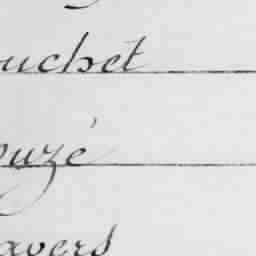 uchet
ouzé
avers